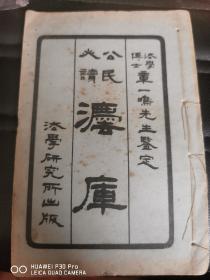 法學
博士
一鳴先生鑒定
公民
必讀
灋庫
法學研究所出版
HUAWEI P30 Pro
LEICA QUAD CAMERA